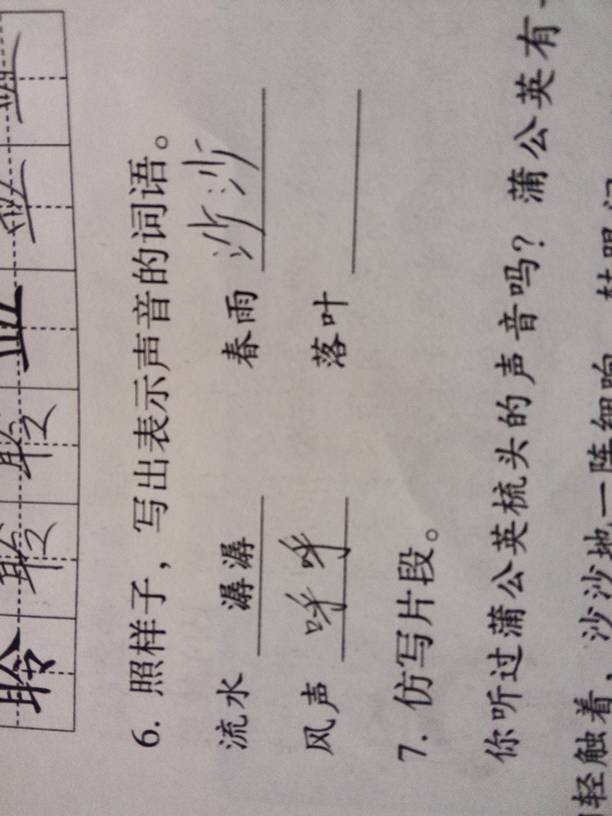 聆 聆 聆 亚 亚 亚
6. 照样子，写出表示声音的词语。
流水 潺潺 春雨 沙沙
风声 呼呼 落叶
7. 仿写片段。
你听过蒲公英梳头的声音吗？蒲公英有一
轻触着，沙沙地一阵细响